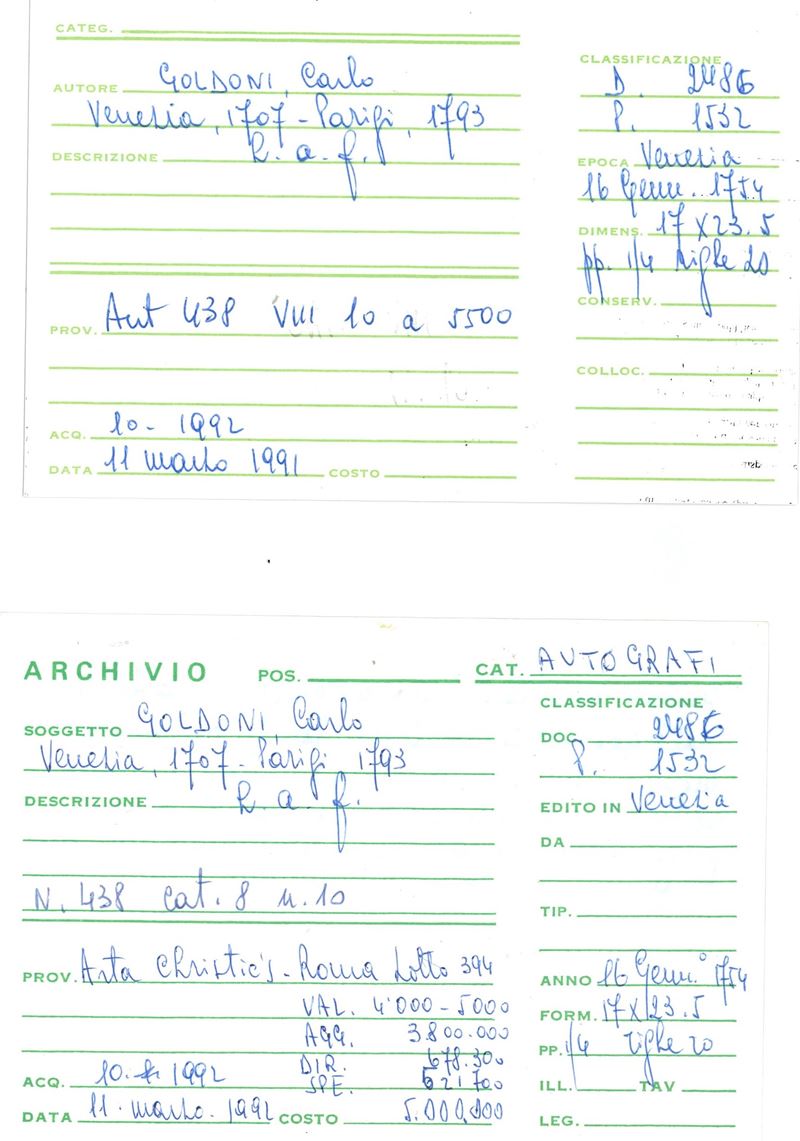 CATEG.
AUTORE GOLDONI, Carlo
Venezia, 1707 - Parigi, 1793
DESCRIZIONE L. a. f.
PROV. Aut 438 VIII 10 a 5500
ACQ. 10 - 1992
DATA 11 marzo 1991 COSTO
CLASSIFICAZIONE
D. 2486
P. 1532
EPOCA Venezia
16 Genn. 1754
DIMENS. 17 X 23.5
pp. 1/4 righe 20
CONSERV.
COLLOC.
ARCHIVIO POS. CAT. AUTOGRAFI
SOGGETTO GOLDONI, Carlo
Venezia, 1707 - Parigi 1793
DESCRIZIONE L. a. f.
N. 438 Cat. 8 n. 10
PROV. Asta Christie's - Roma Lotto 394
VAL. 4'000 - 5000
AGG. 3.800.000
DIR. 678.300
SPE. 521.700
ACQ. 10. 1992
DATA 11. marzo. 1992 COSTO 5.000.000
CLASSIFICAZIONE
DOC. 2486
P. 1532
EDITO IN Venezia
DA
TIP.
ANNO 16 Genn.° 1754
FORM. 17 X 23.5
PP. 1/4 righe 20
ILL. TAV
LEG.